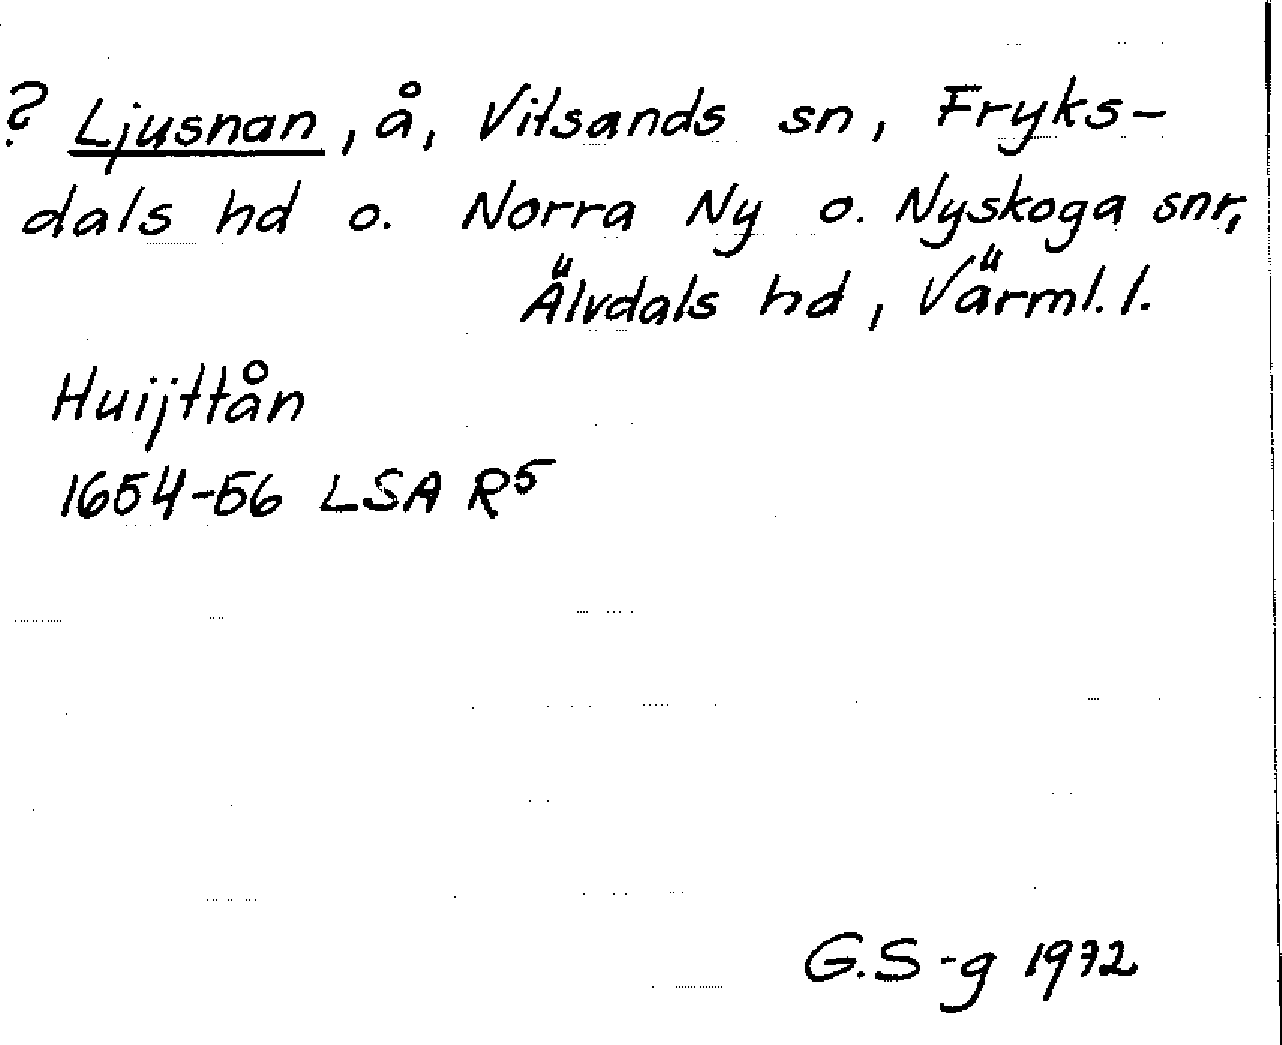 ? Ljusnan, å, Vitsands sn, Fryks-
dals hd o. Norra Ny o. Nyskoga snr,
Älvdals hd, Värml. l.
Huijttån
1654-56 LSA R5
G.S-g 1972